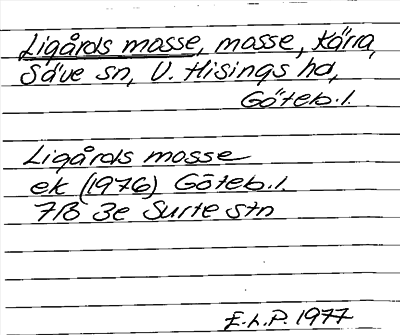 Ligårds mosse, mosse, Kärra,
Säve sn, V. Hisings hd,
Göteb. l.
Ligårds mosse
ek (1976) Göteb. l.
7B 3e Surte stn
E.L.P. 1977